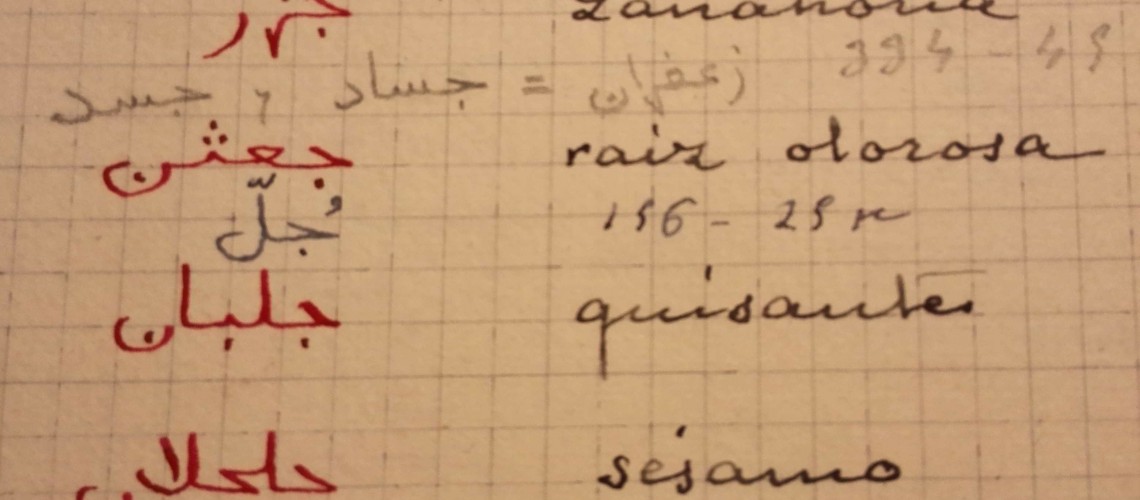 zanahoria
جسد , جساد = زعفران
جعثن raiz olorosa
جُلّ 156 - 25 r
جلبان guisantes
جلجلان sésamo